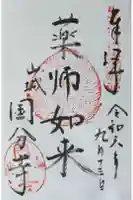 奉拝
令和六年
九月十三日
薬师如来
山城
国分寺